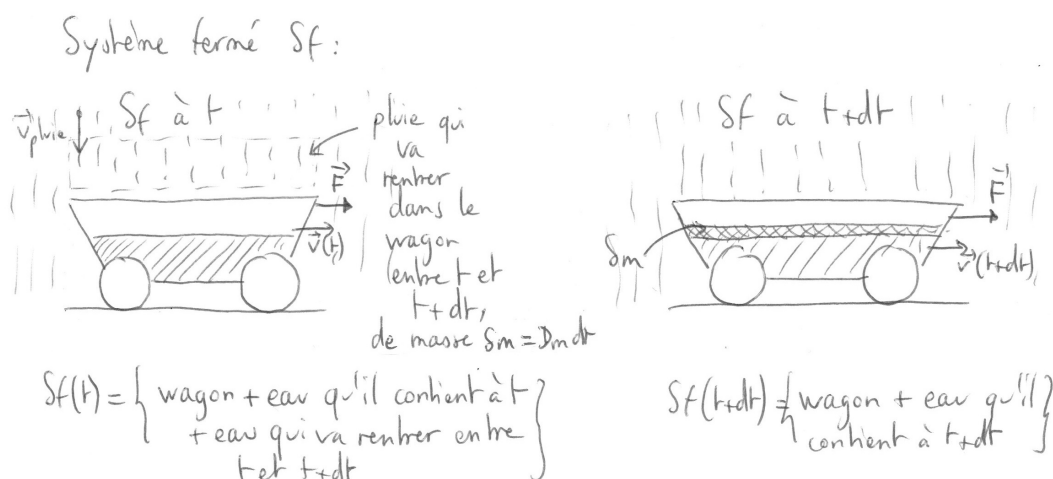 Système fermé Sf :
Sf à t
v⃗pluie
pluie qui
va
rentrer
dans le
wagon
entre t et
t+dt,
de masse δm = Dm dt
F⃗
v⃗(t)
Sf(t) = { wagon + eau qu'il contient à t
+ eau qui va rentrer entre
t et t+dt }
Sf à t+dt
F⃗
δm
v⃗(t+dt)
Sf(t+dt) = { wagon + eau qu'il
contient à t+dt }